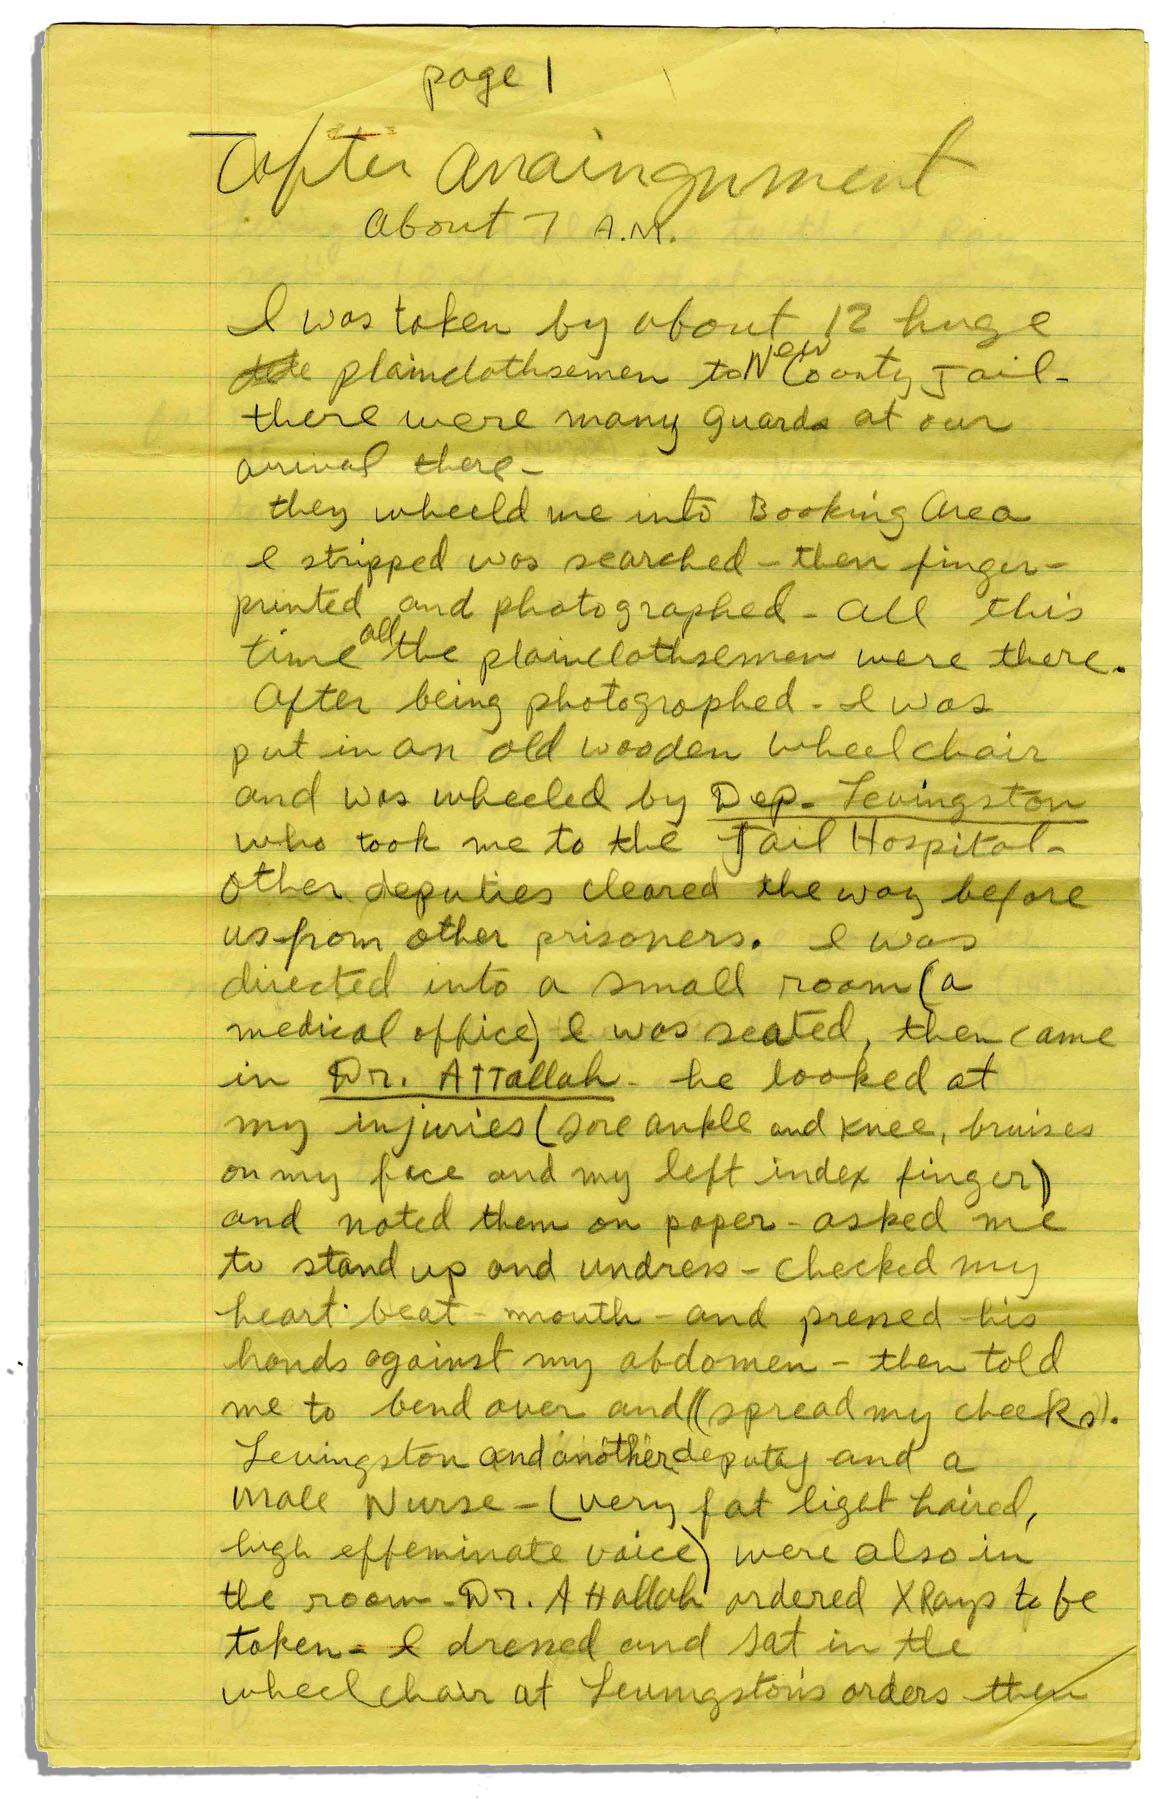 page 1
After Arraingnment
About 7 A.M.
I was taken by about 12 huge
plainclothsemen to New County Jail -
there were many guards at our
arrival there -
they wheeld me into Booking Area
I stripped was searched - then finger-
printed and photographed - All this
time all the plainclothsemen were there.
After being photographed - I was
put in an old wooden wheelchair
and was wheeled by Dep. Levingston
who took me to the Jail Hospital -
Other deputies cleared the way before
us from other prisoners. I was
directed into a small room (a
medical office) I was seated, then came
in Dr. Attallah - he looked at
my injuries (sore ankle and knee, bruises
on my face and my left index finger)
and noted them on paper - asked me
to stand up and undress - checked my
heart beat - mouth - and pressed his
hands against my abdomen - then told
me to bend over and ((spread my cheeks).
Levingston and another deputy and a
male Nurse - (very fat light haired,
high effeminate voice) were also in
the room - Dr. Attallah ordered X Rays to be
taken - I dressed and sat in the
wheelchair at Levingston's orders then